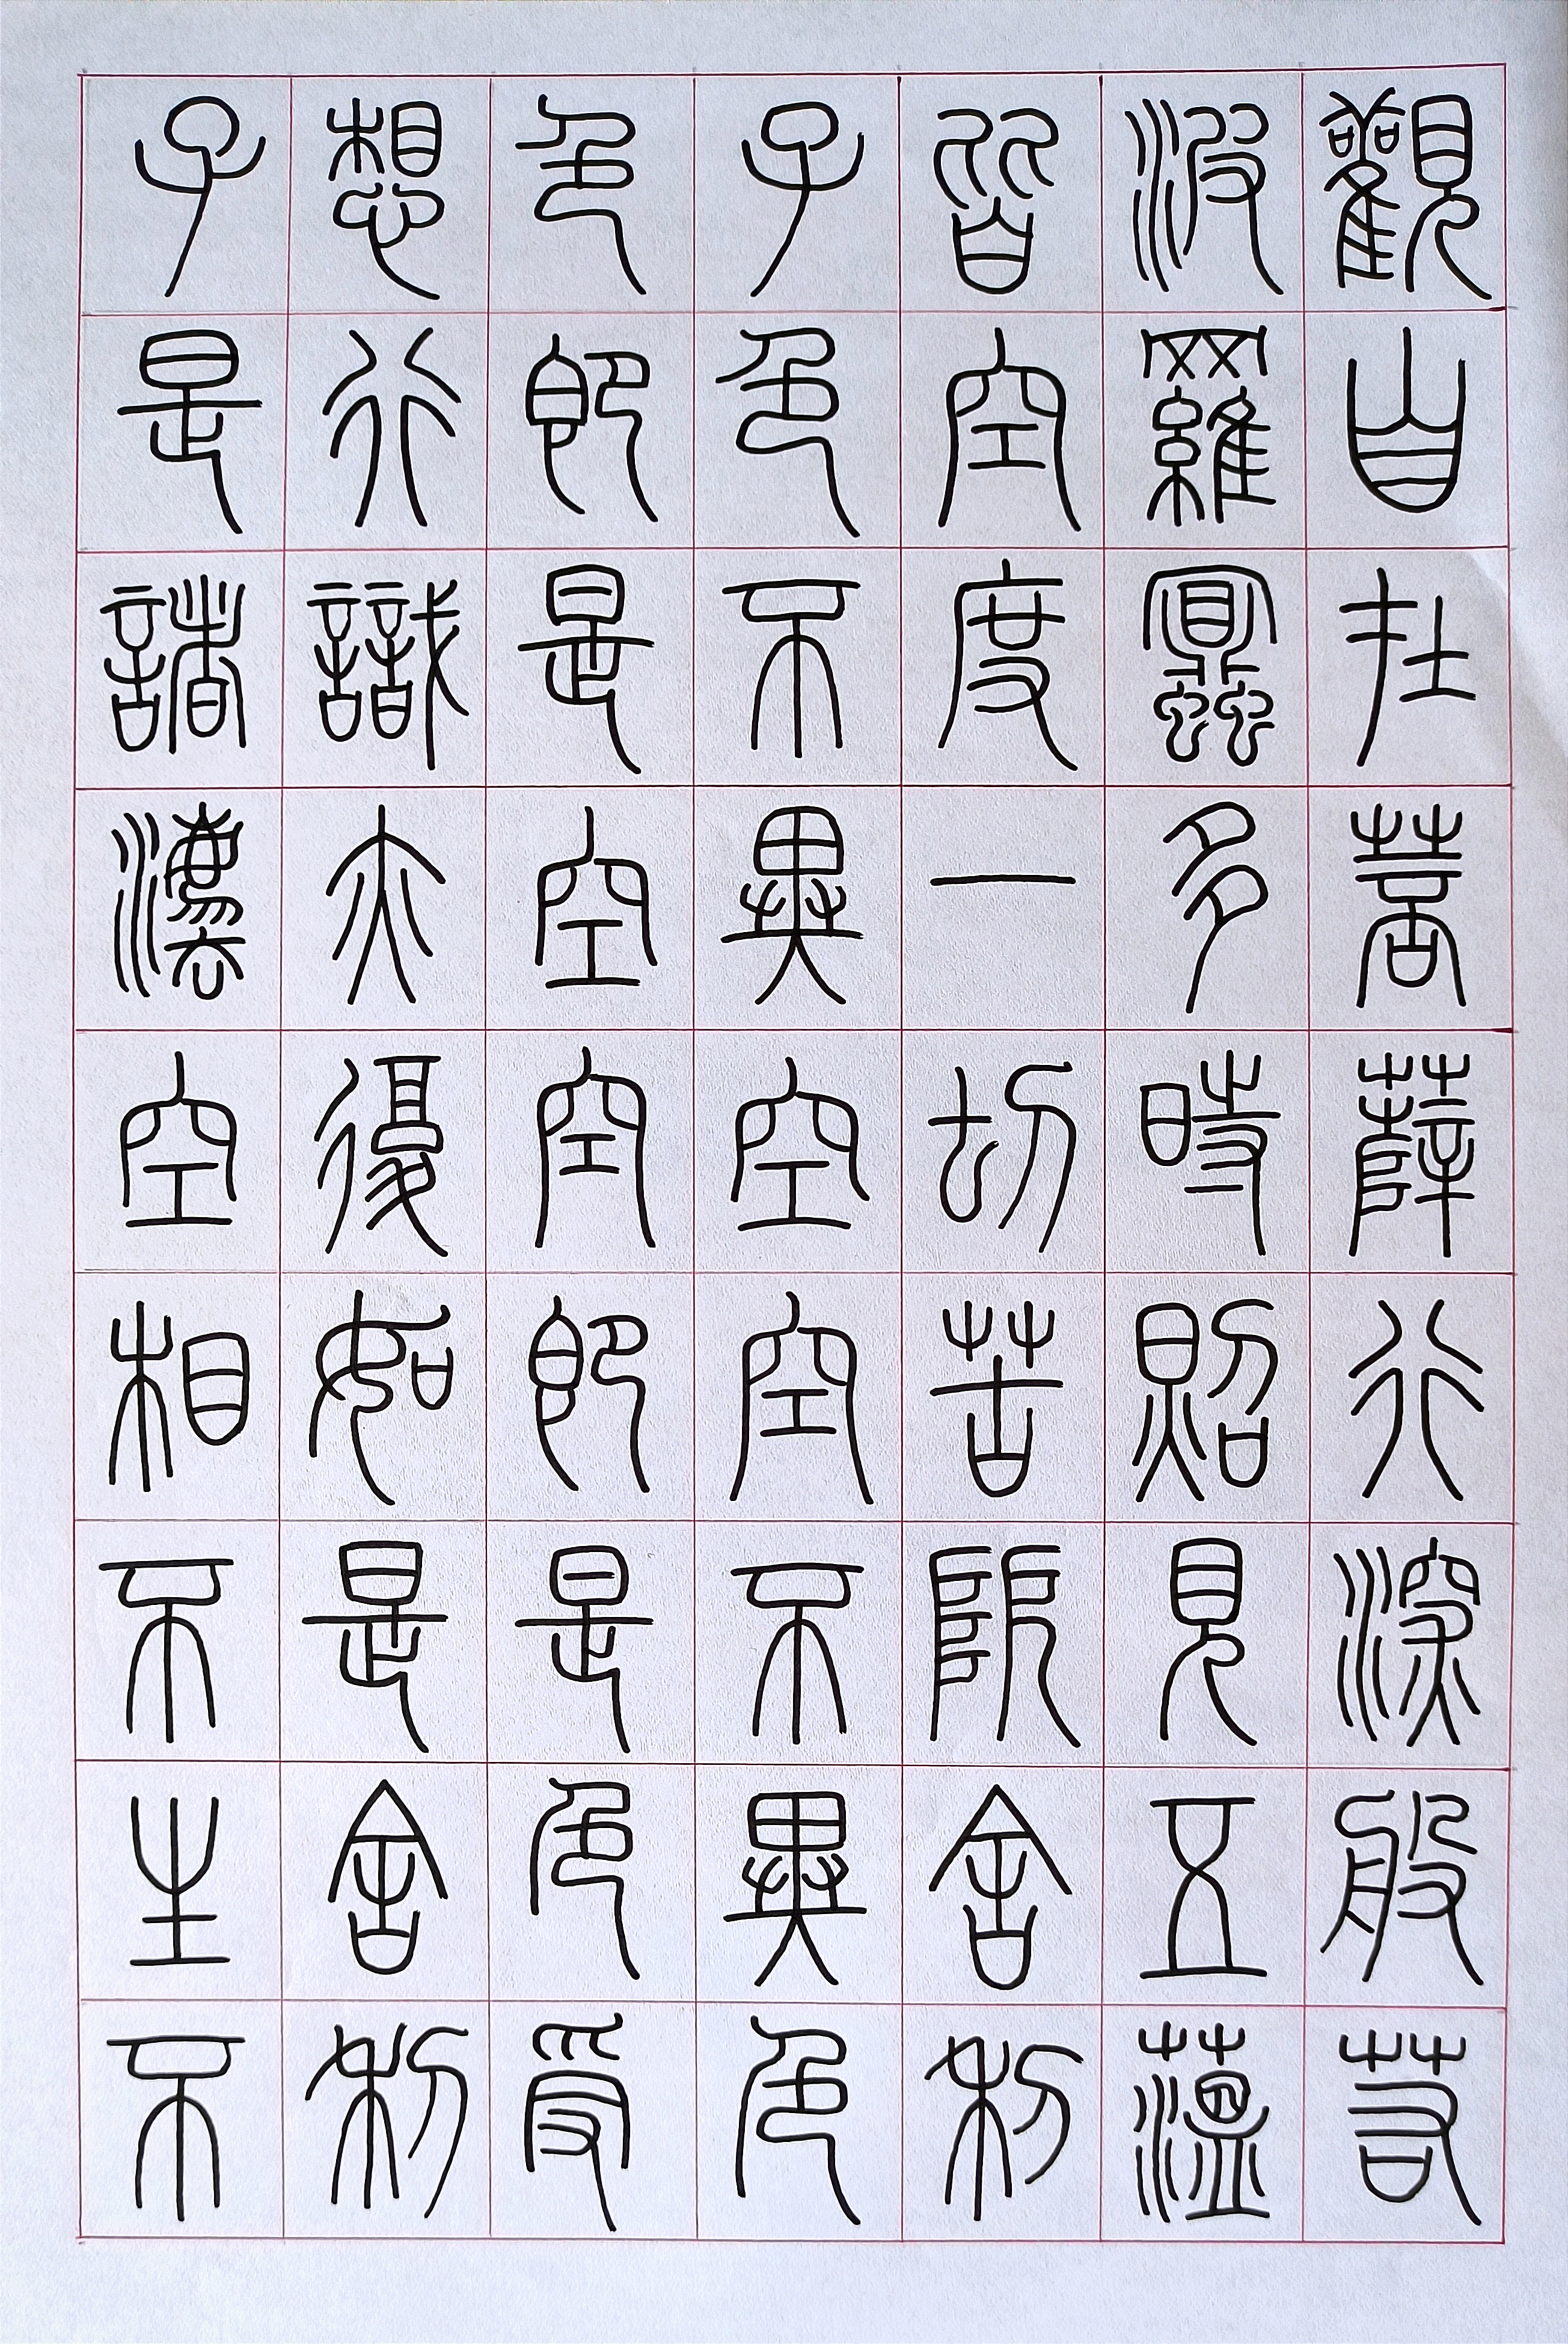 觀自在菩薩行深般若
波羅蜜多時照見五薀
皆空度一切苦阨舍利
子色不異空空不異色
色即是空空即是色受
想行識亦復如是舍利
子是諸灋空相不生不